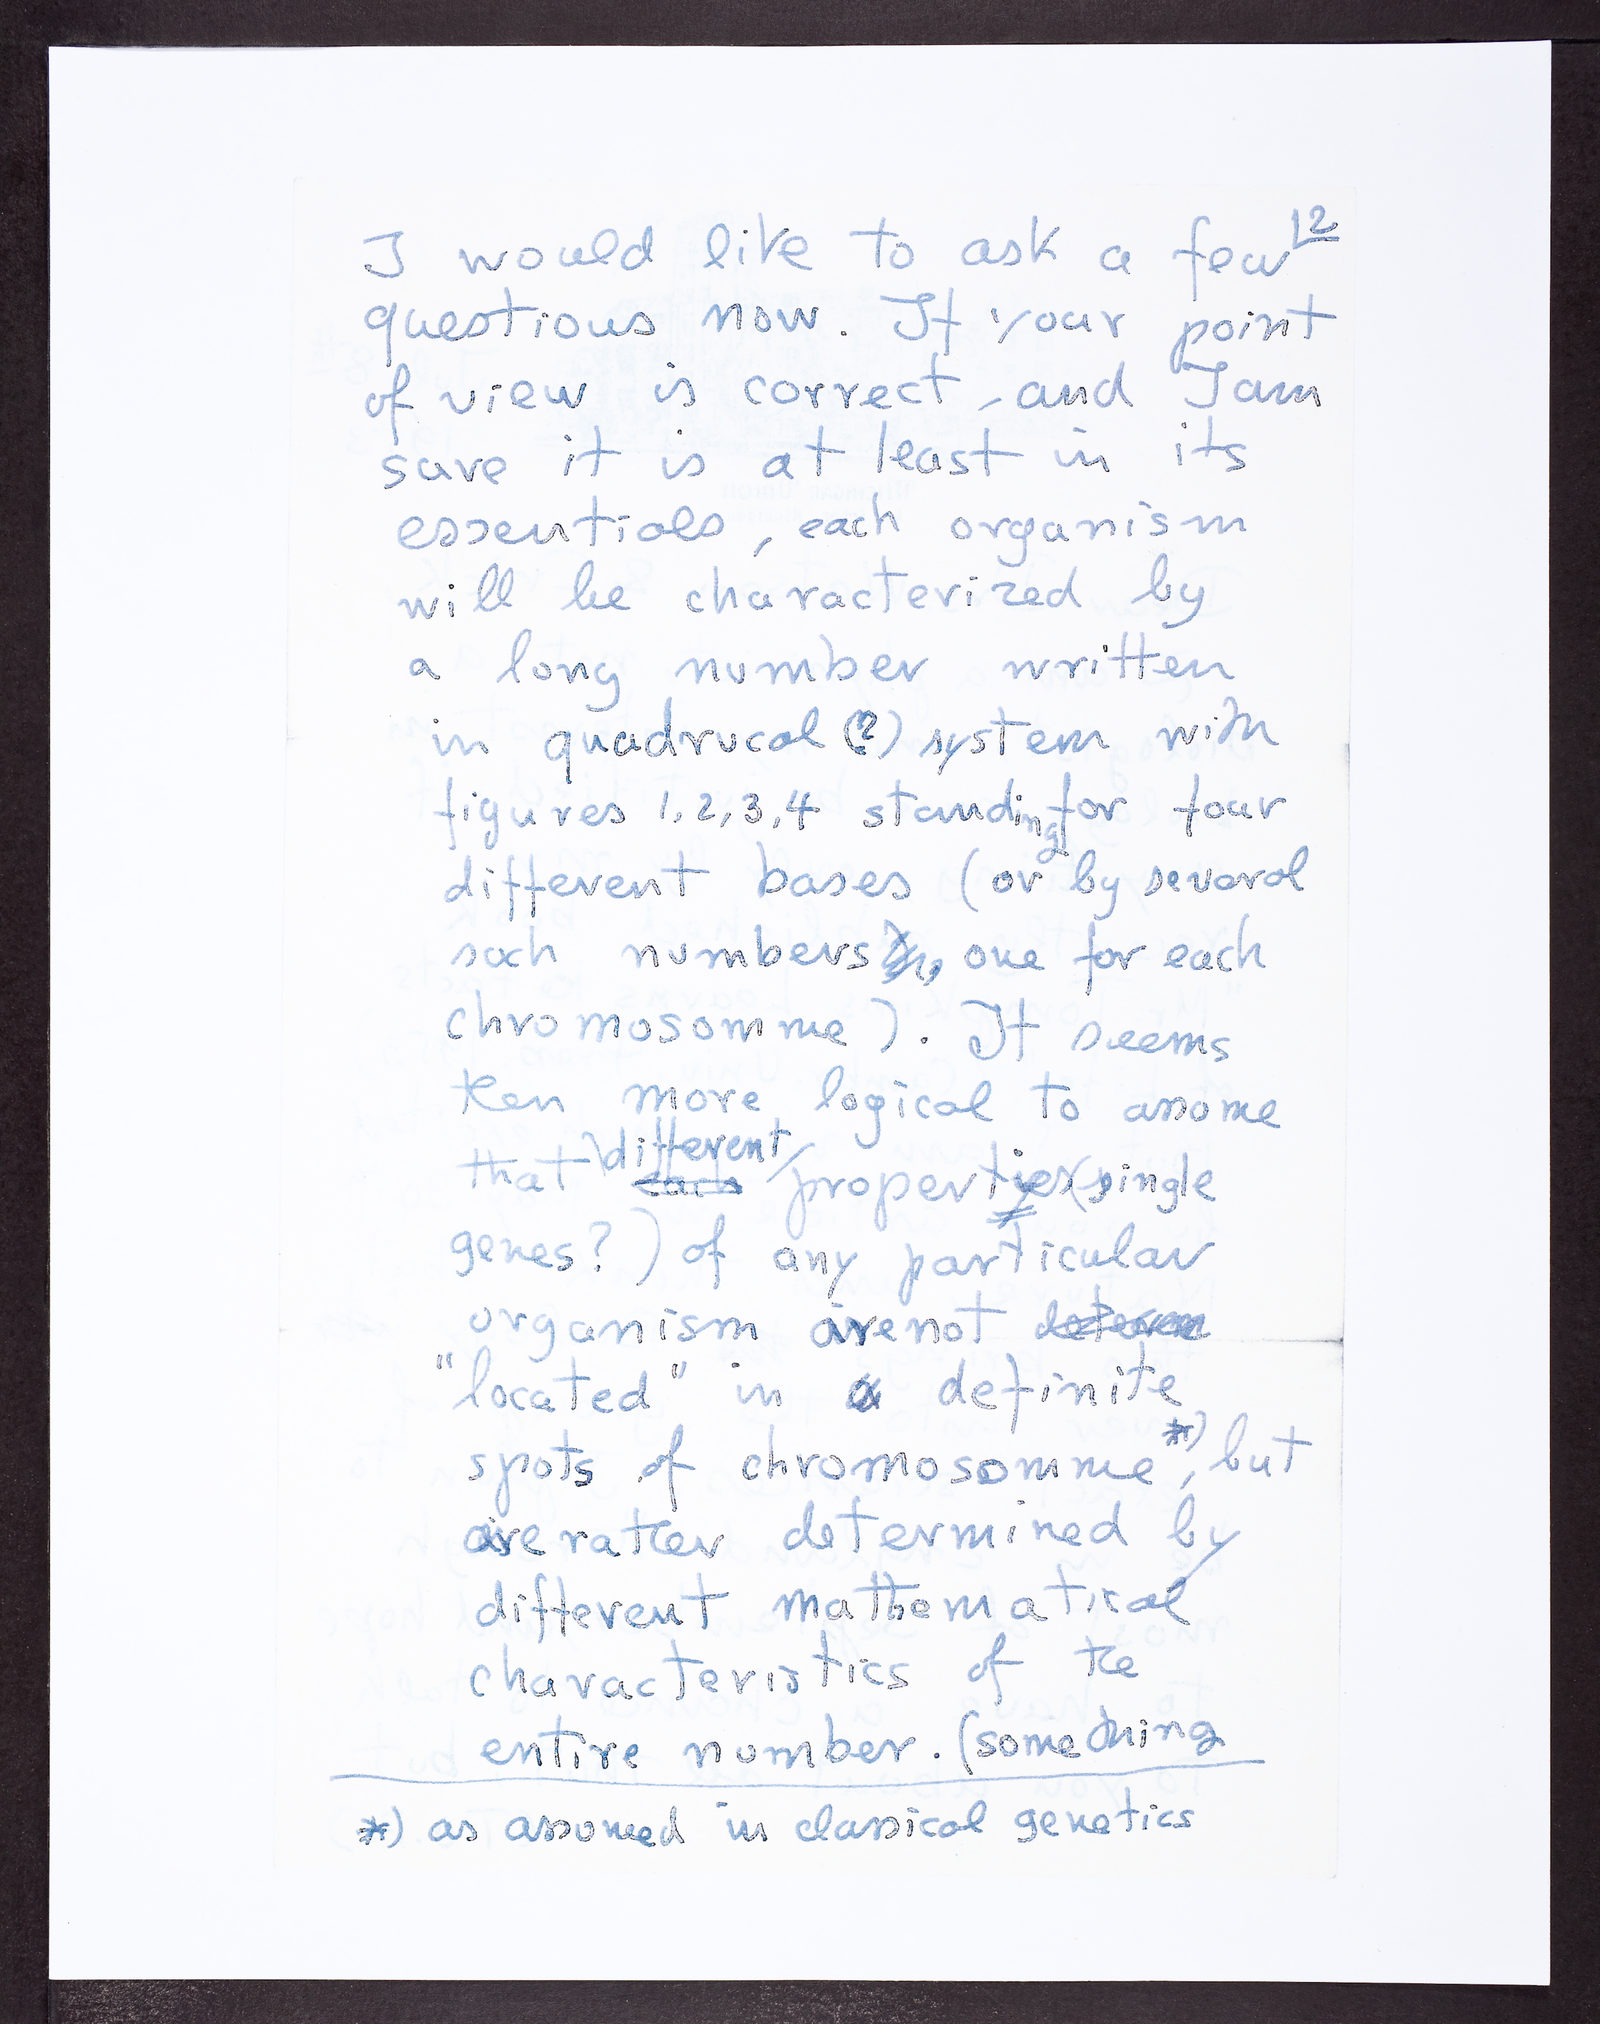 I would like to ask a few
12
questions now. If your point
of view is correct, and I am
sure it is at least in its
essentials, each organism
will be characterized by
a long number written
in quadrucal (?) system with
figures 1, 2, 3, 4 standing for four
different bases (or by several
such numbers, one for each
chromosomme). It seems
then more logical to assome
that different each properties (single
genes?) of any particular
organism are not
"located" in a definite
spots of chromosomme *), but
are rather determined by
different mathematical
characteristics of the
entire number. (something
*) as assomed in classical genetics